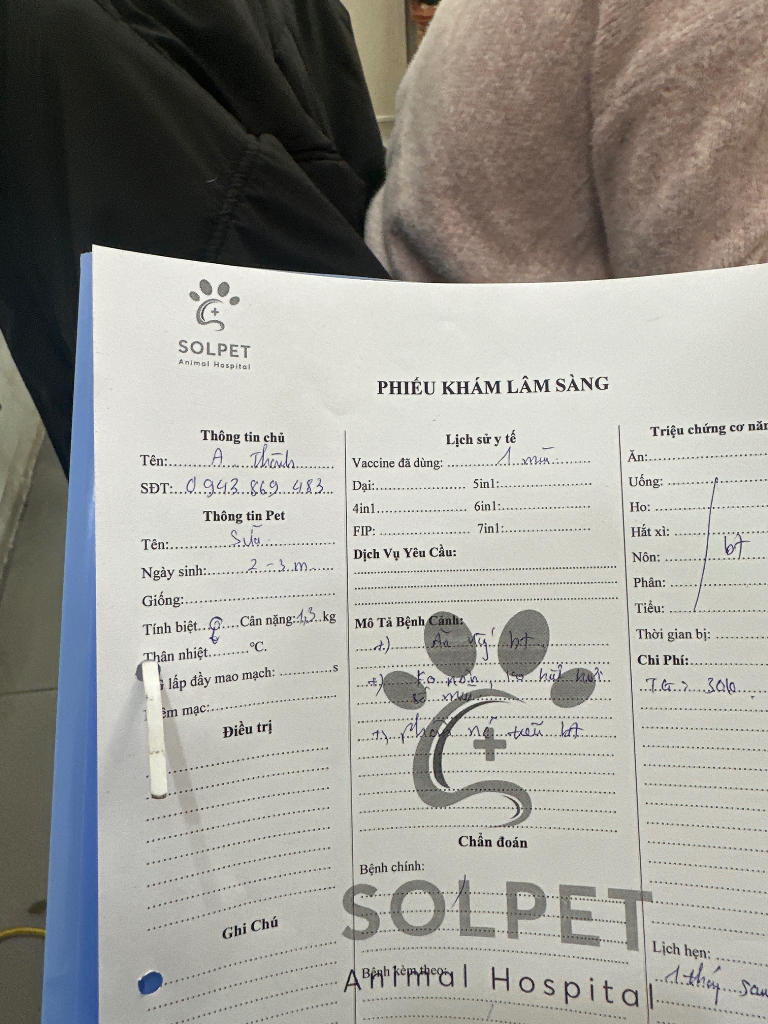 SOLPET
Animal Hospital
PHIẾU KHÁM LÂM SÀNG
Thông tin chủ
Tên: A Thành
SĐT: 0943 869 483
Thông tin Pet
Tên: Sữa
Ngày sinh: 2-3 m
Giống:
Tính biệt: ♀ Cân nặng: 1,3 kg
Thân nhiệt °C.
lấp đầy mao mạch: s
êm mạc:
Điều trị
Ghi Chú
Lịch sử y tế
Vaccine đã dùng: 1 mũi
Dại: 5in1:
4in1 6in1:
FIP: 7in1:
Dịch Vụ Yêu Cầu:
Mô Tả Bệnh Cảnh:
+) Ăn uống bt
+) ko nôn, ko hắt hơi
sổ mũi
+) phân tiểu bt
Chẩn đoán
Bệnh chính:
Bệnh kèm theo:
SOLPET
Animal Hospital
Triệu chứng cơ năn
Ăn:
Uống:
Ho:
Hắt xì:
Nôn: bt
Phân:
Tiểu:
Thời gian bị:
Chi Phí:
Lịch hẹn:
1 tháng sau